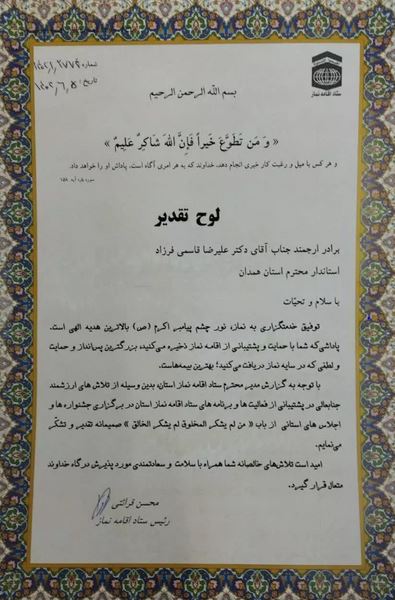 ستاد اقامه نماز
شماره
تاریخ:
بسم الله الرحمن الرحیم
« وَ مَن تَطَوَّعَ خَیراً فَإِنَّ اللّهَ شَاکِرٌ عَلِیمٌ »
و هر کس با میل و رغبت کار خیری انجام دهد، خداوند که به هر امری آگاه است، پاداش او را خواهد داد.
سوره بقره آیه ۱۵۸
لوح تقدیر
برادر ارجمند جناب آقای دکتر علیرضا قاسمی فرزاد
استاندار محترم استان همدان
با سلام و تحیّات
توفیق خدمتگزاری به نماز، نور چشم پیامبر اکرم (ص) بالاترین هدیه الهی است.
پاداش‌ای که شما با حمایت و پشتیبانی از اقامه نماز ذخیره می‌کنید، بزرگترین پس‌انداز و حمایت
و لطفی که در سایه نماز دریافت می‌کنید؛ بهترین بیمه‌هاست.
با توجه به گزارش مدیر محترم ستاد اقامه نماز استان، بدین وسیله از تلاش های ارزشمند
جنابعالی در پشتیبانی از فعالیت ها و برنامه های ستاد اقامه نماز استان در برگزاری جشنواره ها و
اجلاس های استانی از باب « من لم یشکر المخلوق لم یشکر الخالق » صمیمانه تقدیر و تشکّر
می‌نمایم.
امید است تلاش‌های خالصانه شما همراه با سلامت و سعادتمندی مورد پذیرش درگاه خداوند
متعال قرار گیرد.
محسن قرائتی
رئیس ستاد اقامه نماز